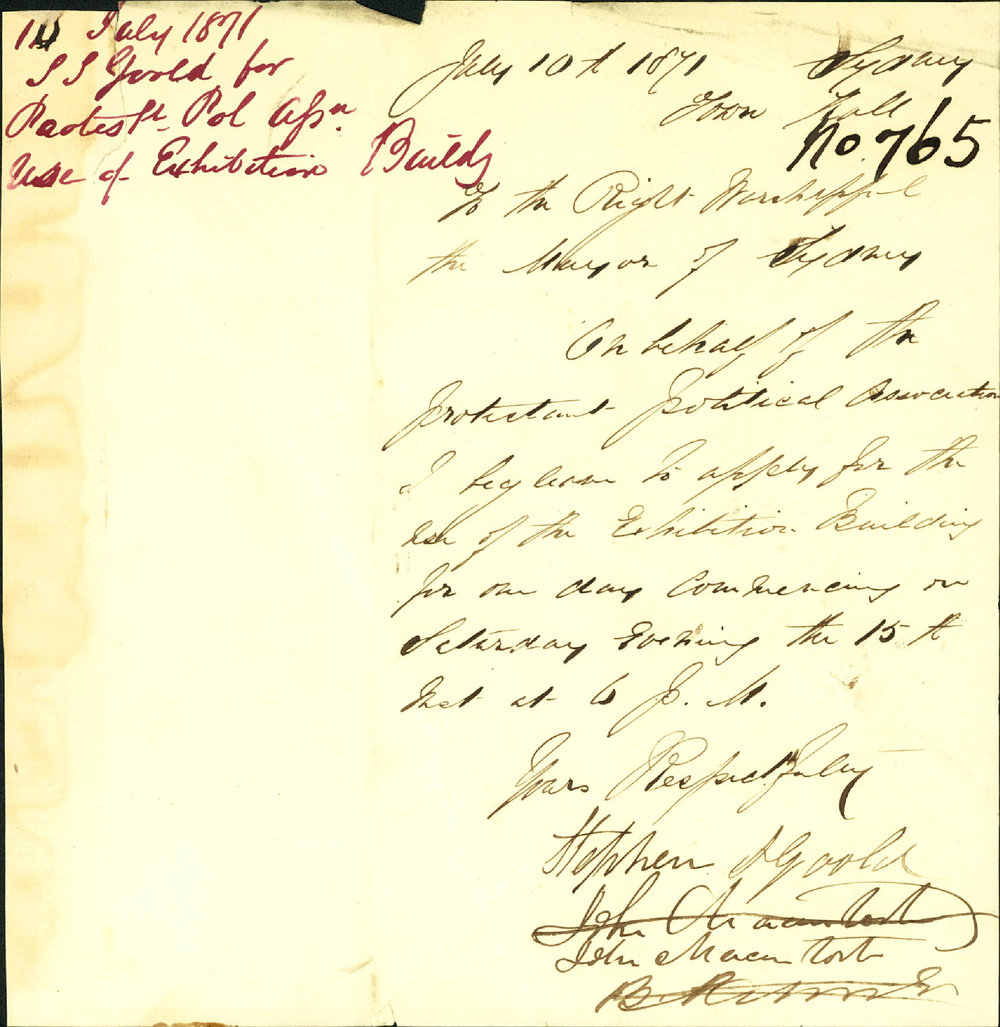 10 July 1871
S S Goold for
Protest. Pol Assn.
Use of Exhibition Buildg
July 10th 1871 Sydney
Town Hall
No. 765
To the Right Worshipful
the Mayor of Sydney
On behalf of the
protestant political Association
I beg leave to apply for the
use of the Exhibition Building
for one day Commencing on
Saturday Evening the 15th
Inst at 6 p.M.
Yours Respectfully
Stephen S Goold
John Macintosh
John Macintosh